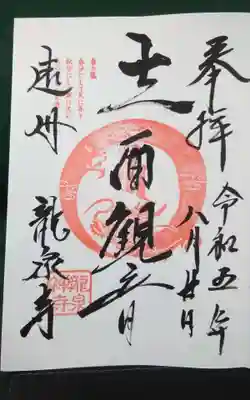 奉拝
令和五年
八月廿日
十一面観音
遠州
龍泉寺
龍泉禅寺